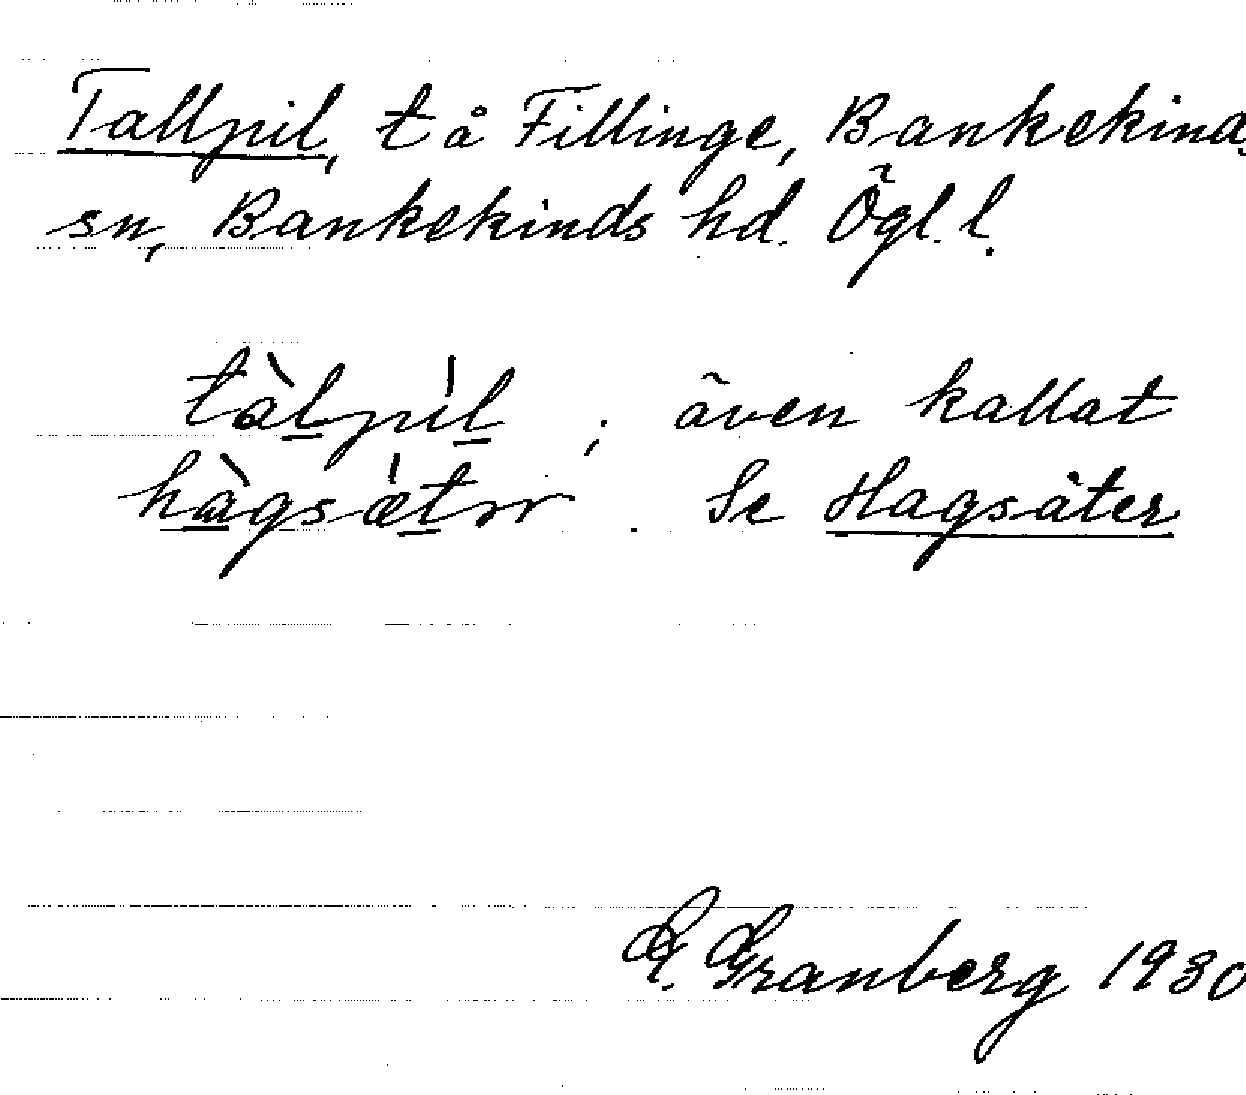 Tallpil, t å Fillinge, Bankekinds
sn, Bankekinds hd. Ögl. l.
tàlpìl ; även kallat
hàgsǽtṛr . Se Hagsäter
G. Granberg 1930